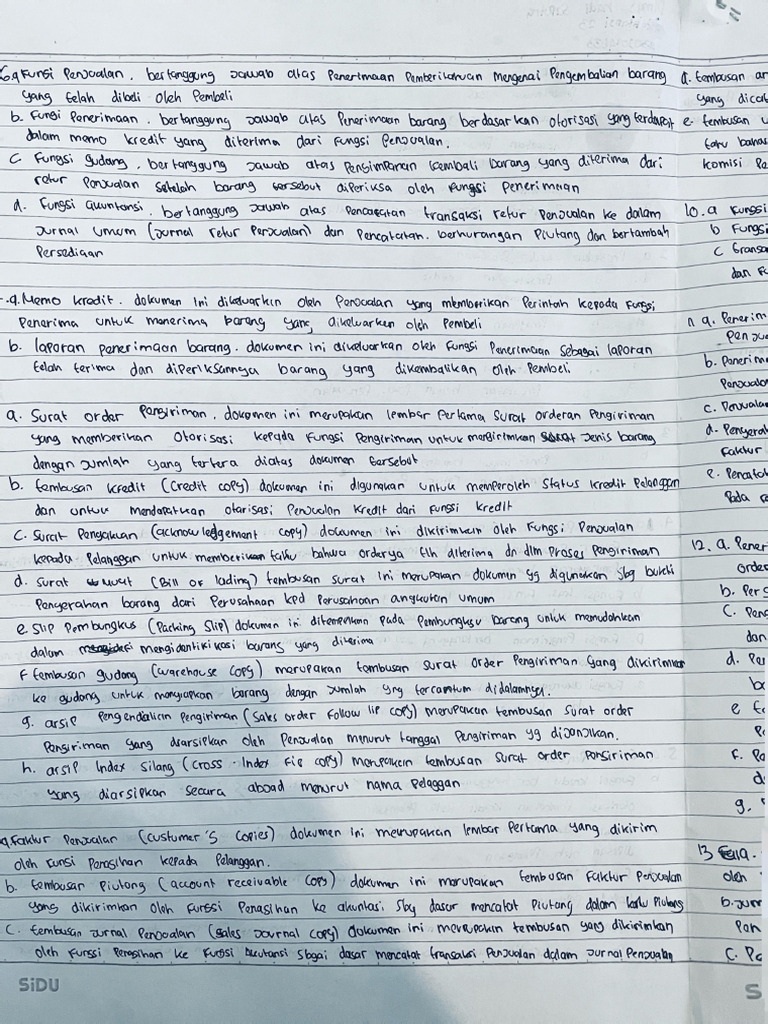 6.a Fungsi Penjualan. bertanggung Jawab atas Penerimaan Pemberitahuan Mengenai Pengembalian barang
yang telah dibeli oleh Pembeli
b. Fungsi Penerimaan. bertanggung Jawab atas Penerimaan barang berdasarkan otorisasi yang terdapat
dalam memo kredit yang diterima dari fungsi Penjualan.
c Fungsi gudang. bertanggung Jawab atas Penyimpanan kembali barang yang diterima dari
retur Penjualan Setelah barang tersebut diperiksa oleh fungsi Penerimaan
d. Fungsi akuntansi. bertanggung Jawab atas Pencatatan transaksi retur Penjualan ke dalam
Jurnal umum (Jurnal retur Penjualan) dan Pencatatan. berkurangan Piutang dan bertambah
Persediaan
a. Memo kredit. dokumen ini dikeluarkan oleh Penjualan yang memberikan Perintah kepada Fungsi
Penerima untuk menerima barang yang dikeluarkan oleh Pembeli
b. laporan penerimaan barang. dokumen ini dikeluarkan oleh fungsi Penerimaan Sebagai laporan
telah terima dan diperiksannya barang yang dikembalikan oleh Pembeli.
a. Surat order Pengiriman. dokumen ini merupakan lembar Pertama Surat orderan Pengiriman
yang memberikan Otorisasi kepada Fungsi Pengiriman untuk mengirimkan Jenis barang
dengan Jumlah yang tertera diatas dokumen tersebut
b. tembusan kredit (credit copy) dokumen ini digunakan untuk memperoleh Status kredit Pelanggan
dan untuk Mendapatkan otorisasi Penjualan kredit dari fungsi kredit
C. Surat Pengakuan (acknowledgement copy) dokumen ini dikirimkan oleh Fungsi Penjualan
kepada Pelanggan untuk memberikan tahu bahwa ordernya tlh diterima dn dlm Proses Pengiriman
d. Surat Muat (Bill of lading) tembusan surat ini merupakan dokumen yg digunakan sbg bukti
Penyerahan barang dari Perusahaan kpd Perusahaan angkutan umum
e. Slip Pembungkus (Packing Slip) dokumen ini ditempelkan Pada Pembungkus barang untuk memudahkan
dalam mengidentifikasi barang yang diterima
f tembusan gudang (warehouse copy) merupakan tembusan surat order Pengiriman yang dikirimkan
ke gudang untuk menyiapkan barang dengan Jumlah yng tercantum didalamnya.
g. arsip Pengendalian Pengiriman (Sales order follow up copy) merupakan tembusan Surat order
Pengiriman yang diarsipkan oleh Penjualan menurut tanggal Pengiriman yg dijanjikan.
h. arsip Index Silang (Cross-Index File copy) merupakan tembusan Surat order Pengiriman
yang diarsipkan secara abjad menurut nama Pelaggan
a. faktur Penjualan (custumer's copies) dokumen ini merupakan lembar Pertama yang dikirim
oleh Funsi Penagihan kepada Pelanggan.
b. tembusan Piutang (account receivable copy) dokumen ini merupakan tembusan Faktur Penjualan
yang dikirimkan oleh fungsi Penagihan ke akuntasi. Sbg dasar mencatat Piutang dalam kartu Piutang
C. tembusan Jurnal Penjualan (sales Journal copy) dokumen ini merupakan tembusan yang dikirimkan
oleh fungsi Penagihan ke fungsi akutansi Sbgai dasar mencatat transaksi Penjualan dalam Jurnal Penjualan
SiDU
d. tembusan
yang
e tembusan
tahu
komisi
10. a Fungsi
b Fungsi
c
dan
a.
b.
c. Penjualan
d.
Faktur
e.
Pada
12. a.
order
b.
C.
dan
d.
e
f.
g.
13 a.
oleh
b. Jurn
C.
S